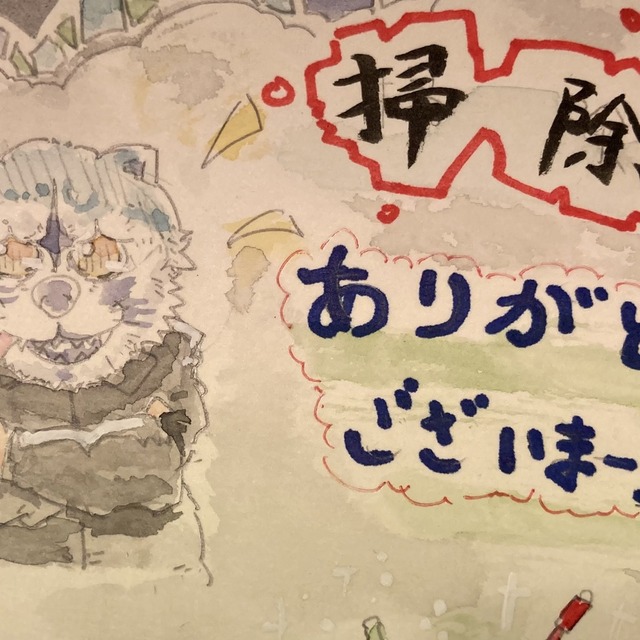 掃除
ありがと
ございまー